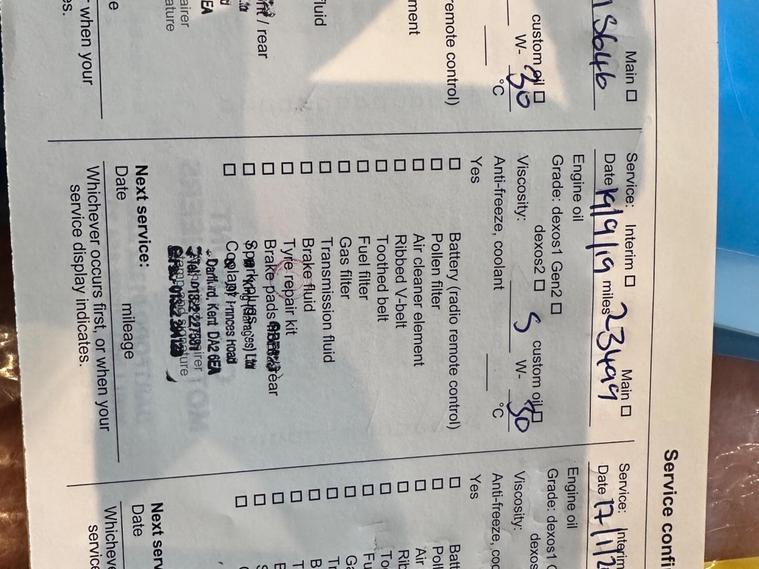 Service confi
Main ☐
15646
custom oil ☐
W- 30
°C
remote control)
ment
fluid
/ rear
EA
airer
ature
e
when your
es.
Service: Interim ☐ Main ☐
Date 19/9/19 miles 23499
Engine oil
Grade: dexos1 Gen2 ☐
dexos2 ☐ custom oil ☐
Viscosity: 5 W- 30
Anti-freeze, coolant °C
Yes
☐ Battery (radio remote control)
☐ Pollen filter
☐ Air cleaner element
☐ Ribbed V-belt
☐ Toothed belt
☐ Fuel filter
☐ Gas filter
☐ Transmission fluid
☐ Brake fluid
☐ Tyre repair kit
☐ Brake pads rear
☐ Spark plugs
☐ Coolant
Princes Road
Dartford, Kent DA2 6EA
Next service:
Date mileage
Whichever occurs first, or when your
service display indicates.
Service: Interim
Date 17/1/2
Engine oil
Grade: dexos1 G
dexos
Viscosity:
Anti-freeze, coo
Yes
☐ Batt
☐ Poll
☐ Air
☐ Rib
☐ To
☐ Fu
☐ Ga
☐ Tr
☐ B
☐ T
Next serv
Date
Whicheve
service